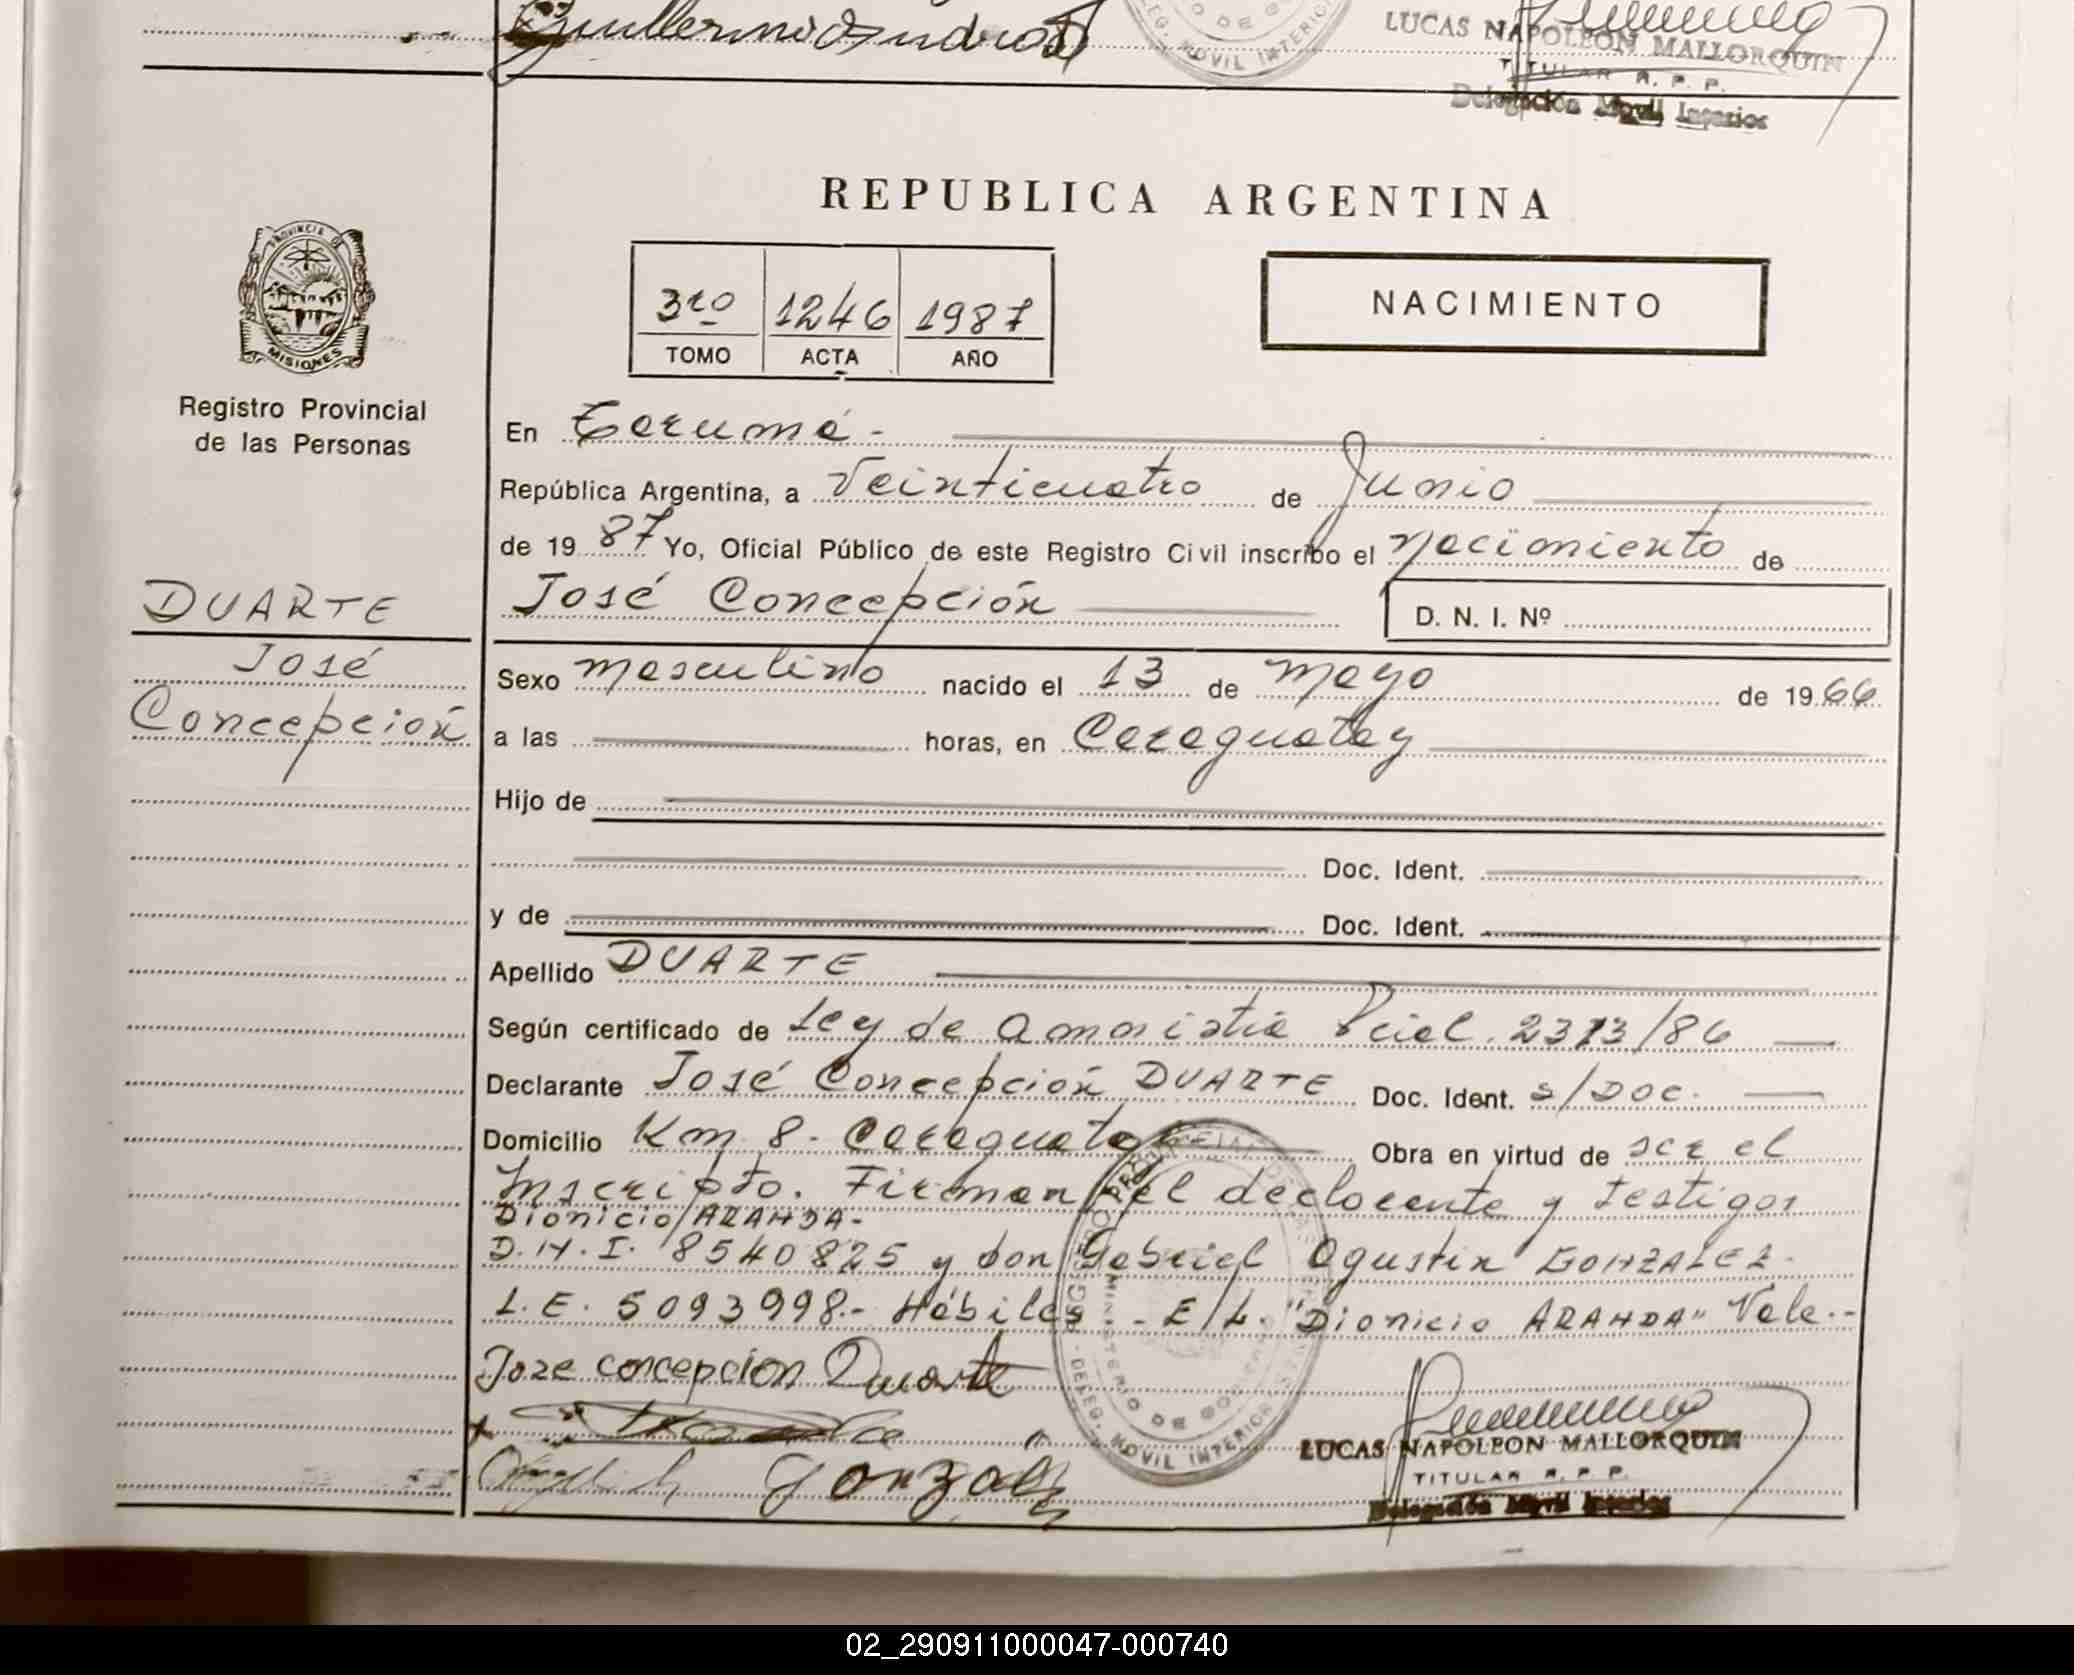 Guillermo Andrés
LUCAS NAPOLEON MALLORQUIN
TITULAR R. P. P.
Delegación Movil Interior
REPUBLICA ARGENTINA
PROVINCIA DE
MISIONES
Registro Provincial
de las Personas
3ro 1246 1987
TOMO ACTA AÑO
NACIMIENTO
En Tarumá.-
República Argentina, a Veinticuatro de Junio
de 1987 Yo, Oficial Público de este Registro Civil inscribo el nacimiento de
José Concepción D. N. I. Nº
DUARTE
José
Concepción
Sexo masculino nacido el 13 de mayo de 1966
a las horas, en Caraguatay
Hijo de
Doc. Ident.
y de Doc. Ident.
Apellido DUARTE
Según certificado de Ley de Amnistía Pcial. 2313/86
Declarante José Concepción DUARTE Doc. Ident. s/DOC.
Domicilio Km 8. Caraguatay Obra en virtud de ser el
Inscripto. Firman el declarante y testigos
Dionicio ARANDA-
D.N.I. 8540825 y don Gabriel Agustín GONZALEZ.
L.E. 5093998.- Hábiles.- E/L. "Dionicio ARANDA" Vale.-
Joze concepcion Duarte
Gonzalez
DELEG. MOVIL INTERIOR
MINISTERIO DE GOBIERNO
LUCAS NAPOLEON MALLORQUIN
TITULAR R. P. P.
Delegación Movil Interior
02_290911000047-000740